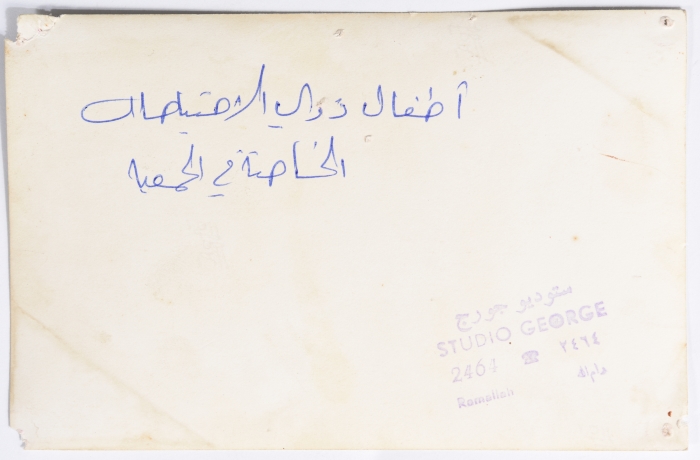 أطفال ذوي الاحتياجات
الخاصة في الجمعية
ستوديو جورج
STUDIO GEORGE
2464 ☎ ٢٤٦٤
Ramallah رام الله